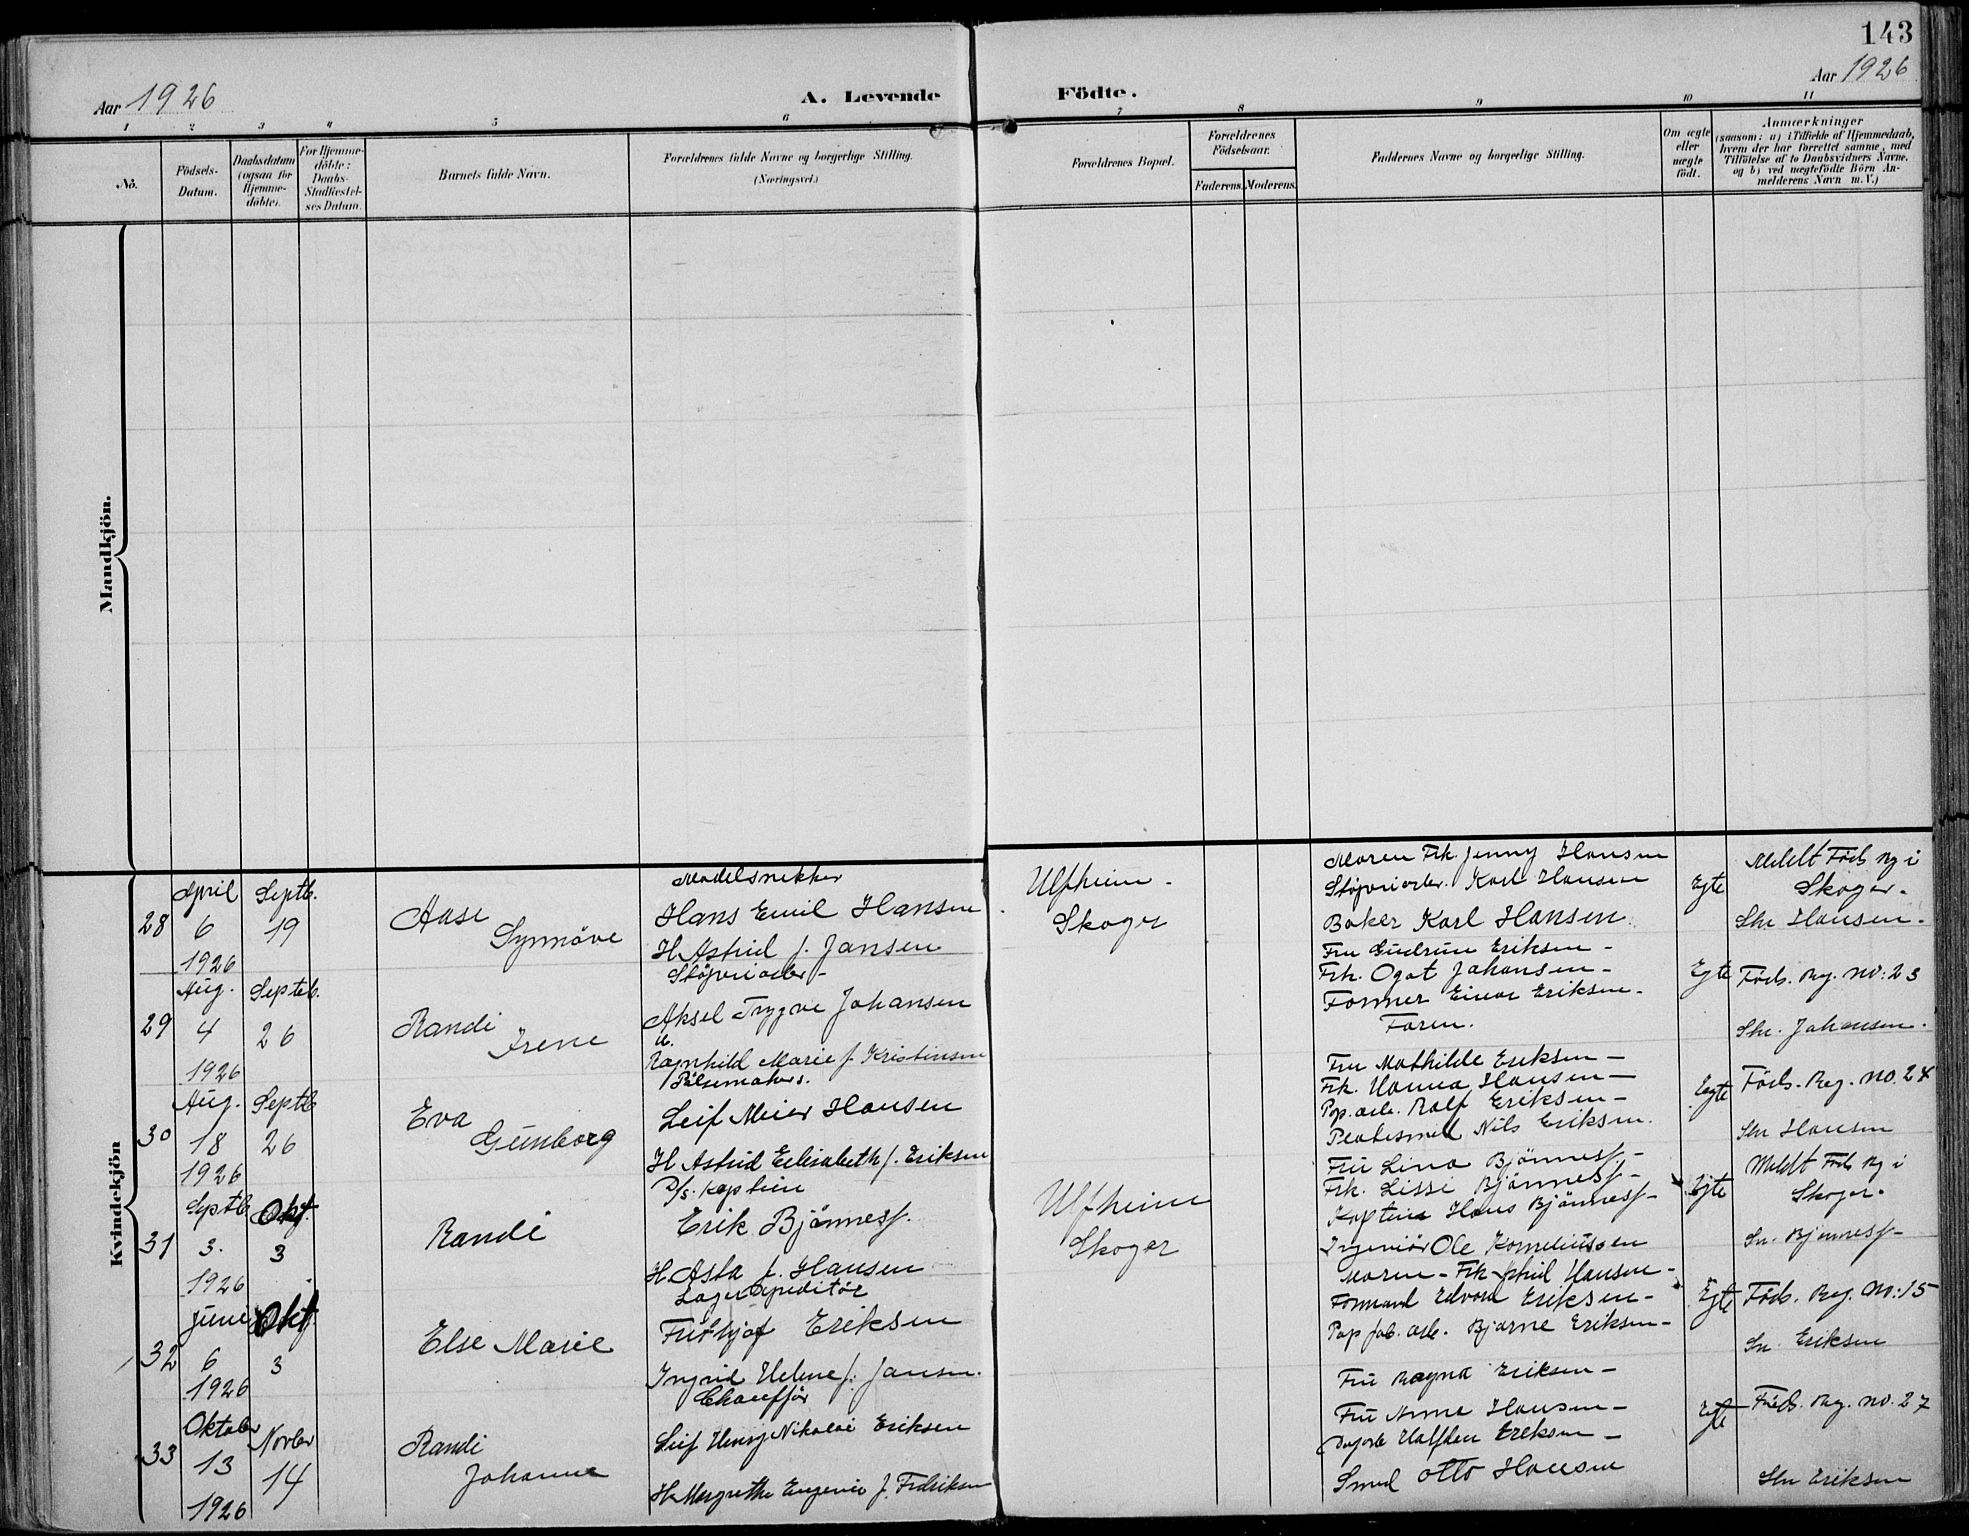 143
Aar 1926
A. Levende Födte.
Aar 1926
1 2 3 4 5 6 7 8 9 10 11
No.
Födsels-Datum.
Daabsdatum (ogsaa for Hjemme-döbte).
For Hjemme-döbte: Daabs-Stadfæstel-ses Datum.
Barnets fulde Navn.
Forældrenes fulde Navne og borgerlige Stilling.
(Næringsvei.)
Forældrenes Bopæl.
Forældrenes Födselsaar.
Faderens. Moderens.
Faddernes Navne og borgerlige Stilling.
Om ægte eller uægte födt.
Anmærkninger
(saasom: a) i Tilfælde af Hjemmedaab,
hvem der har forrettet samme, med
Tilföielse af to Daabsvidners Navne,
og b) ved uægtefödte Börn An-
melderens Navn m. V.)
Mandkjön.
Kvindekjön
28
April 6 1926
Septb. 19
Aase Synnöve
Modelsnekker
Hans Emil Hansen
H. Astrid f. Jansen
Ulfheim -
Skoger
Moren Frk. Jenny Hansen
Støpericarb. Karl Hansen
Baker Karl Hansen
Fru Gudrun Eriksen -
Egte
Meldt Föds Rg i
Skoger.
Shr Hansen.
29
Aug. 4 1926
Septb. 26
Randi Irene
Støperiarb -
Aksel Trygve Johansen
H.
Ragnhild Marie f. Kristensen
Frk. Ogot Johansen -
Former Einar Eriksen -
Faren.
Egte
Föds. Reg. no: 23
Shr. Johansen.
30
Aug. 18 1926
Septb 26
Eva Gunborg
Pølsemaker.
Leif Meier Hansen
H Astrid Elisabeth f. Eriksen
Fru Mathilde Eriksen -
Frk. Hanna Hansen -
Pap. arb. Ralf Eriksen -
Nils Eriksen.
Egte
Föds. Reg. no. 24
Shr Hansen
31
Septb 3. 1926
Okt. 3
Randi
D/s. Kaptein
Erik Bjönness.
H. Asta f. Hansen
Ulfheim
Skoger
Fru Lina Bjönness -
Frk. Lissi Bjönness -
Kaptein Hans Bjönness -
Ingeniör Ole Korneliussen
Egte
Meldt Föds Rg i
Skoger.
Sn. Bjönness -
32
Juni 6 1926
Okt. 3
Else Marie
Lagerexpeditör
Frithjof Eriksen
Ingrid Helene f. Jansen.
Moren - Frk Hansen -
Formand Edvard Eriksen -
Pap fab. arb. Bjarne Eriksen -
Fru Magna Eriksen -
Egte
Föds. Reg. no: 15
Sn. Eriksen
33
Oktober 13 1926
Novbr 14
Randi Johanne
Chaufför
Leif Henry Nikolai Eriksen
H. Margrethe Eugenie f. Fredriksen
Fru Anna Hansen -
Halfden Eriksen -
Smed Otto Hansen
Egte
Föds. Reg. no. 27
Shr Eriksen